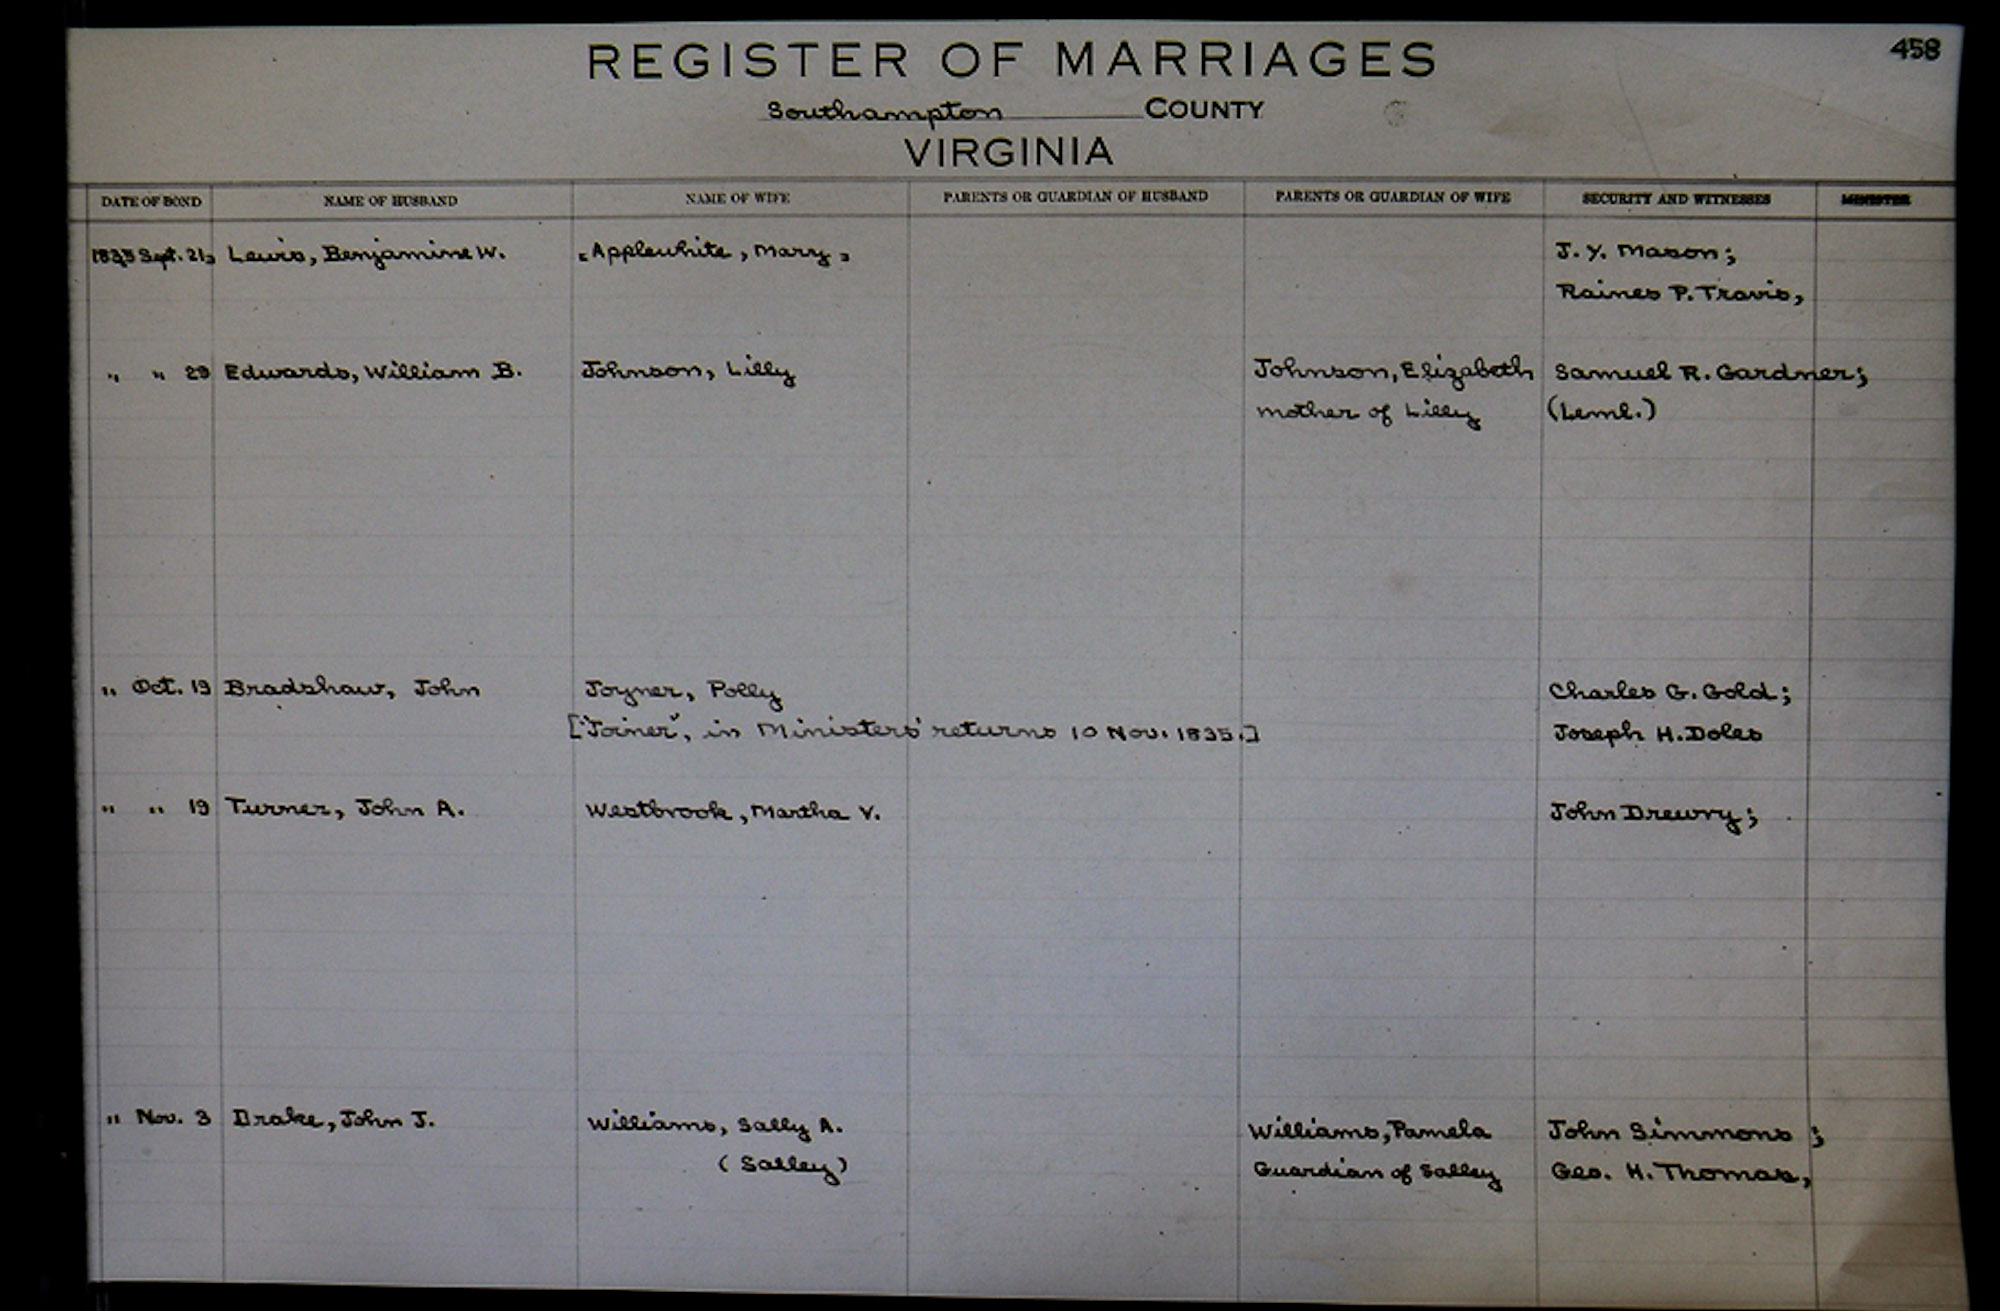 458
REGISTER OF MARRIAGES
Southampton COUNTY
VIRGINIA
DATE OF BOND NAME OF HUSBAND NAME OF WIFE PARENTS OR GUARDIAN OF HUSBAND PARENTS OR GUARDIAN OF WIFE SECURITY AND WITNESSES MINISTER
1835 Sept. 21, Lewis, Benjamine W. Applewhite, Mary, J. Y. Mason;
Raines P. Travis,
" " 29 Edwards, William B. Johnson, Lilly Johnson, Elizabeth Samuel R. Gardner;
mother of Lilly (Leml.)
" Oct. 19 Bradshaw, John Joyner, Polly Charles G. Gold;
["Joiner", in Ministers' returns 10 Nov. 1835.] Joseph H. Doles
" " 19 Turner, John A. Westbrook, Martha V. John Drewry;
" Nov. 3 Drake, John J. Williams, Sally A. Williams, Pamela John Simmons;
(Salley) Guardian of Salley Geo. H. Thomas,